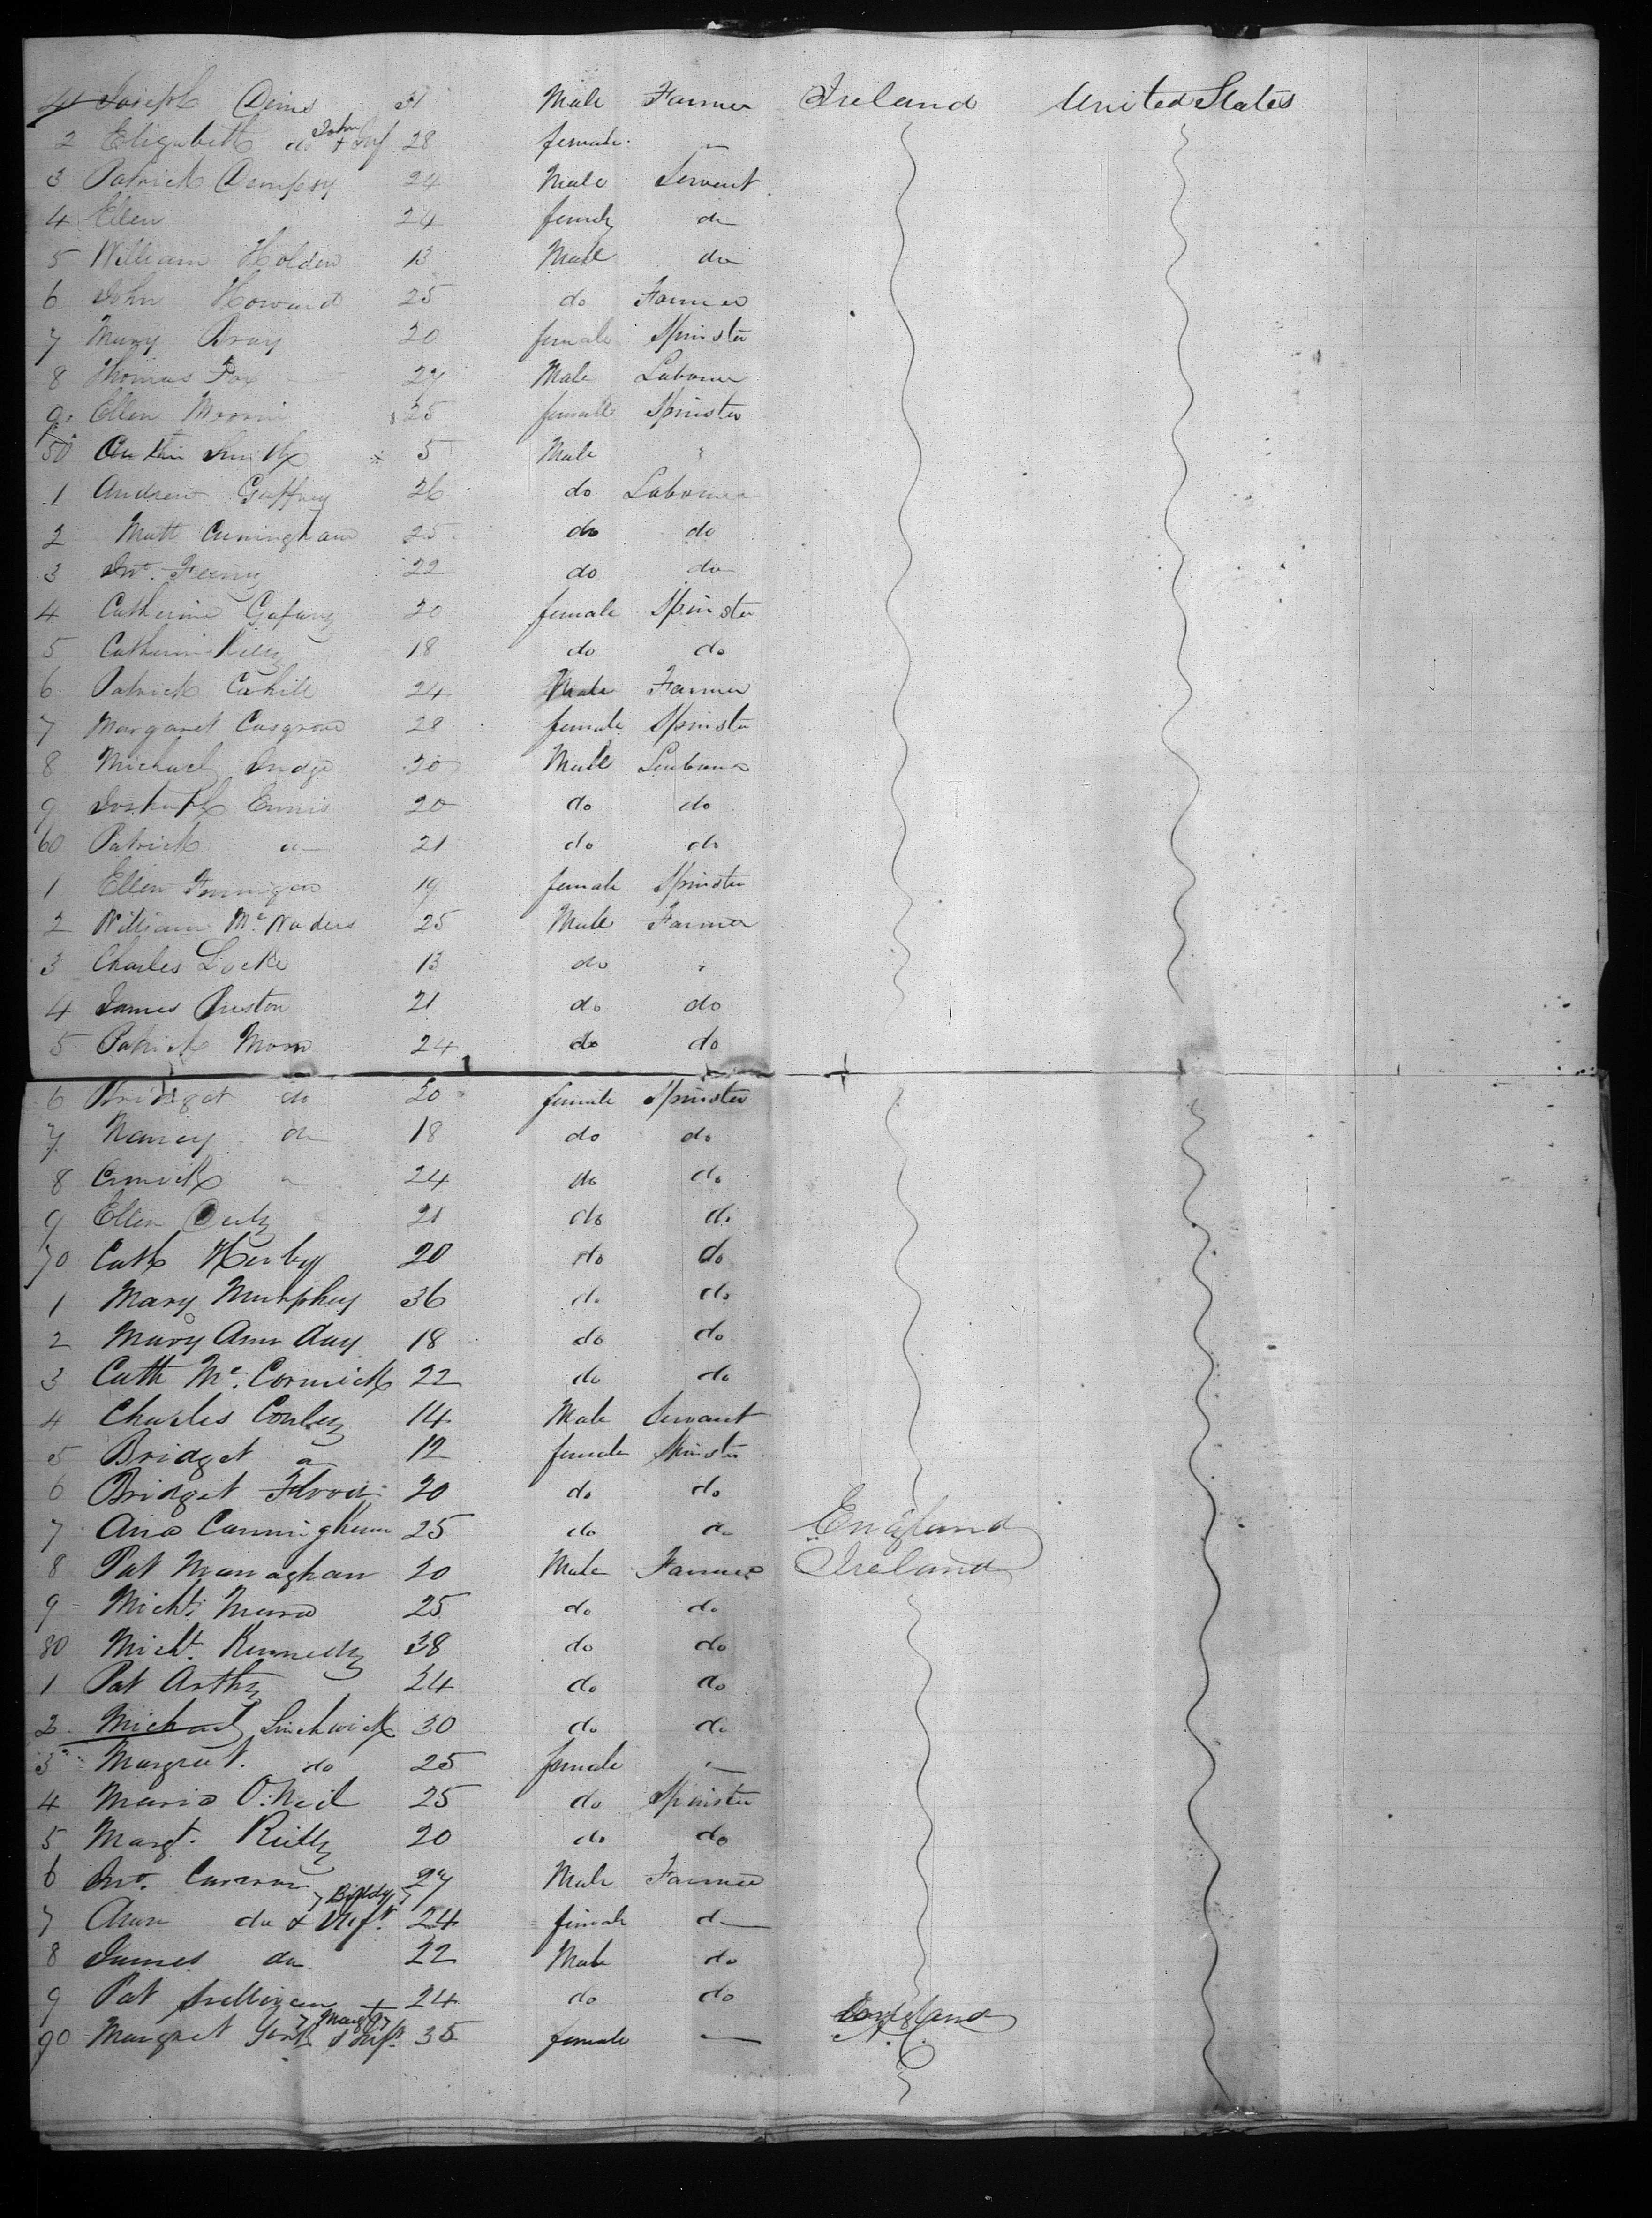 41 Joseph Deins 31 Male Farmer Ireland United States
2 Elizabeth do John + Inf 28 female "
3 Patrick Dempsy 24 Male Servent
4 Ellen 24 female do
5 William Holden 13 Male do
6 John Howard 25 do Farmer
7 Mary Bray 20 female Spinster
8 Thomas Fox 27 Male Labourer
9 Ellen 25 female Spinster
50 Smith 5 Male "
1 Andrew Gaffney 26 do Labourer
2 Matt Cuningham 25 do do
3 Jno. Feeny 22 do do
4 Catherine Gafany 20 female Spinster
5 Catherine 18 do do
6 Patrick Cahill 24 Male Farmer
7 Margaret Casgrove 28 female Spinster
8 Michael Judge 20 Male Labourer
9 Joseph Ennis 20 do do
60 Patrick do 21 do do
1 Ellen Finnigan 19 female Spinster
2 William Mc 25 Male Farmer
3 Charles Locke 13 do "
4 James Preston 21 do do
5 Patrick Moor 24 do do
6 Bridget do 20 female Spinster
7 Nancy do 18 do do
8 do 24 do do
9 Ellen 21 do do
70 Cath 20 do do
1 Mary Murphey 36 do do
2 Mary Ann Day 18 do do
3 Cath Mc. Cormick 22 do do
4 Charles Conley 14 Male Servant
5 Bridget do 12 female Spinster
6 Bridget Flood 20 do do
7 Ann Cunningham 25 do do England
8 Pat Managhan 20 Male Farmer Ireland
9 Michl Mara 25 do do
80 Michl. Kennedy 38 do do
1 Pat Arthy 24 do do
2 Michael 30 do do
3 Margret. do 25 female "
4 Maria O'Neil 25 do Spinster
5 Margt. Reilly 20 do do
6 Jno. Curran 27 Male Farmer
7 Ann do & Biddy Inft. 24 female do
8 James do 22 Male do
9 Pat Sullivan 24 do do
90 Margret & Margt Inft. 35 female — England